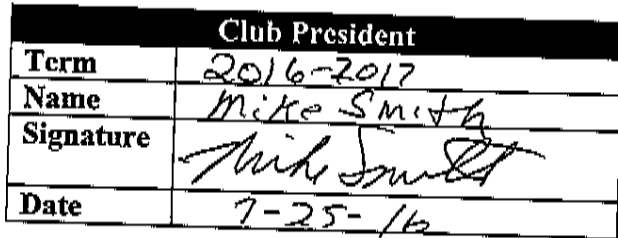 Club President
Term 2016-2017
Name Mike Smith
Signature Mike Smith
Date 7-25-16